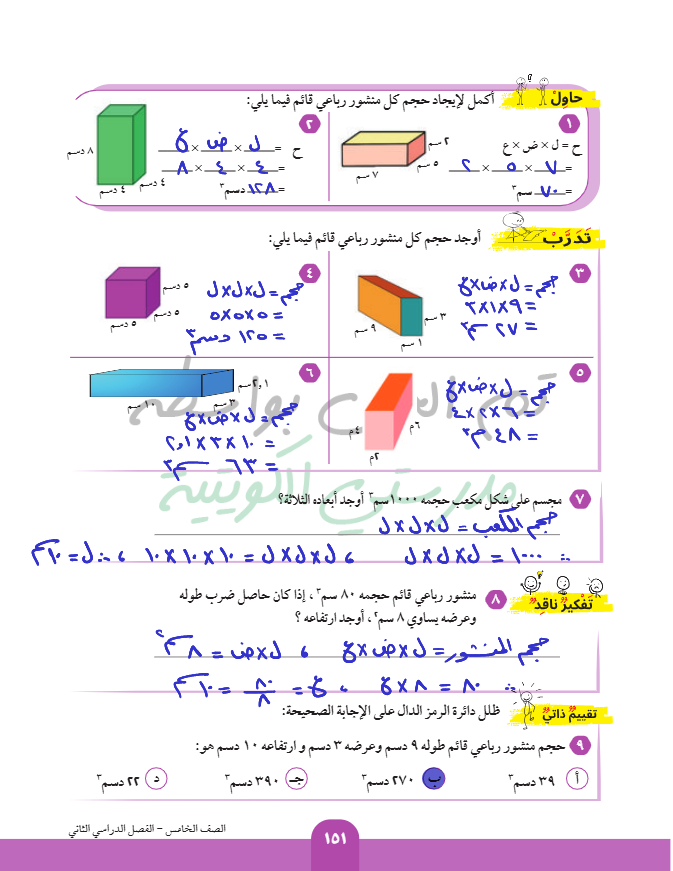 حاوِلْ أكمل لإيجاد حجم كل منشور رباعي قائم فيما يلي:
١
ح = ل × ض × ع
= ٧ × ٥ × ٢
= ٧٠ سم٣
٢ سم
٥ سم
٧ سم
٢
ح = ل × ض × ع
= ٤ × ٤ × ٨
= ١٢٨ دسم٣
٨ دسم
٤ دسم
٤ دسم
تَدَرَّبْ أوجد حجم كل منشور رباعي قائم فيما يلي:
٣
حجم = ل × ض × ع
= ٩ × ١ × ٣
= ٢٧ سم٣
٣ سم
١ سم
٩ سم
٤
حجم = ل × ل × ل
= ٥ × ٥ × ٥
= ١٢٥ دسم٣
٥ دسم
٥ دسم
٥ دسم
٥
حجم = ل × ض × ع
= ٦ × ٢ × ٤
= ٤٨ م٣
٦م
٤م
٢م
٦
٢,١ سم
٣ سم
١٠ سم
حجم = ل × ض × ع
= ١٠ × ٣ × ٢,١
= ٦٣ سم٣
تم الحل بواسطة
مدرستي الكويتية
٧ مجسم على شكل مكعب حجمه ١٠٠٠سم٣ أوجد أبعاده الثلاثة؟
حجم المكعب = ل × ل × ل
∴ ١٠٠٠ = ل × ل × ل ، ل × ل × ل = ١٠ × ١٠ × ١٠ ، ∴ ل = ١٠ سم
تَفْكيرٌ ناقِدٌ
٨ منشور رباعي قائم حجمه ٨٠ سم٣ ، إذا كان حاصل ضرب طوله
وعرضه يساوي ٨ سم٢ ، أوجد ارتفاعه ؟
حجم المنشور = ل × ض × ع ، ل × ض = ٨ سم٢
∴ ٨٠ = ٨ × ع ، ع = ٨٠/٨ = ١٠ سم
تقييمٌ ذاتيٌّ ظلل دائرة الرمز الدال على الإجابة الصحيحة:
٩ حجم منشور رباعي قائم طوله ٩ دسم وعرضه ٣ دسم و ارتفاعه ١٠ دسم هو:
أ ٣٩ دسم٣ ب ٢٧٠ دسم٣ جـ ٣٩٠ دسم٣ د ٢٢ دسم٣
الصف الخامس – الفصل الدراسي الثاني
١٥١